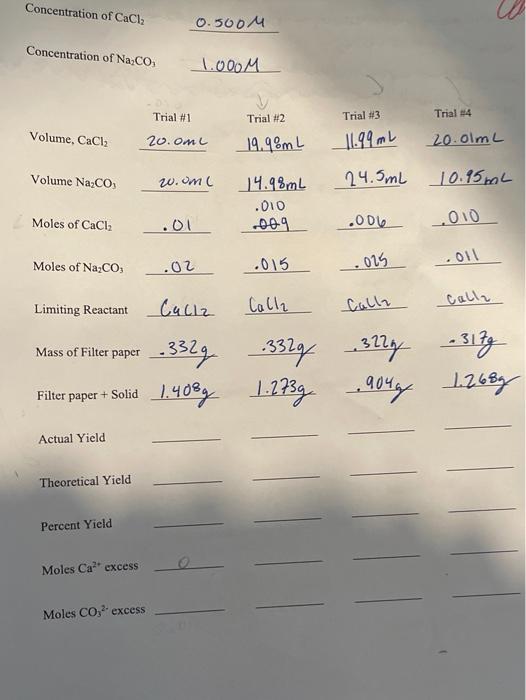 Concentration of CaCl₂ 0.500M
Concentration of Na₂CO₃ 1.000M
Trial #1 Trial #2 Trial #3 Trial #4
Volume, CaCl₂ 20.0mL 19.98mL 11.99mL 20.01mL
Volume Na₂CO₃ 20.0mL 14.98mL 24.5mL 10.95mL
.010
Moles of CaCl₂ .01 .009 .006 .010
Moles of Na₂CO₃ .02 .015 .025 .011
Limiting Reactant CaCl2 CaCl2 CaCl2 CaCl2
Mass of Filter paper .332g .332g .322g .317g
Filter paper + Solid 1.408g 1.273g .904g 1.268g
Actual Yield
Theoretical Yield
Percent Yield
Moles Ca²⁺ excess 0
Moles CO₃²⁻ excess